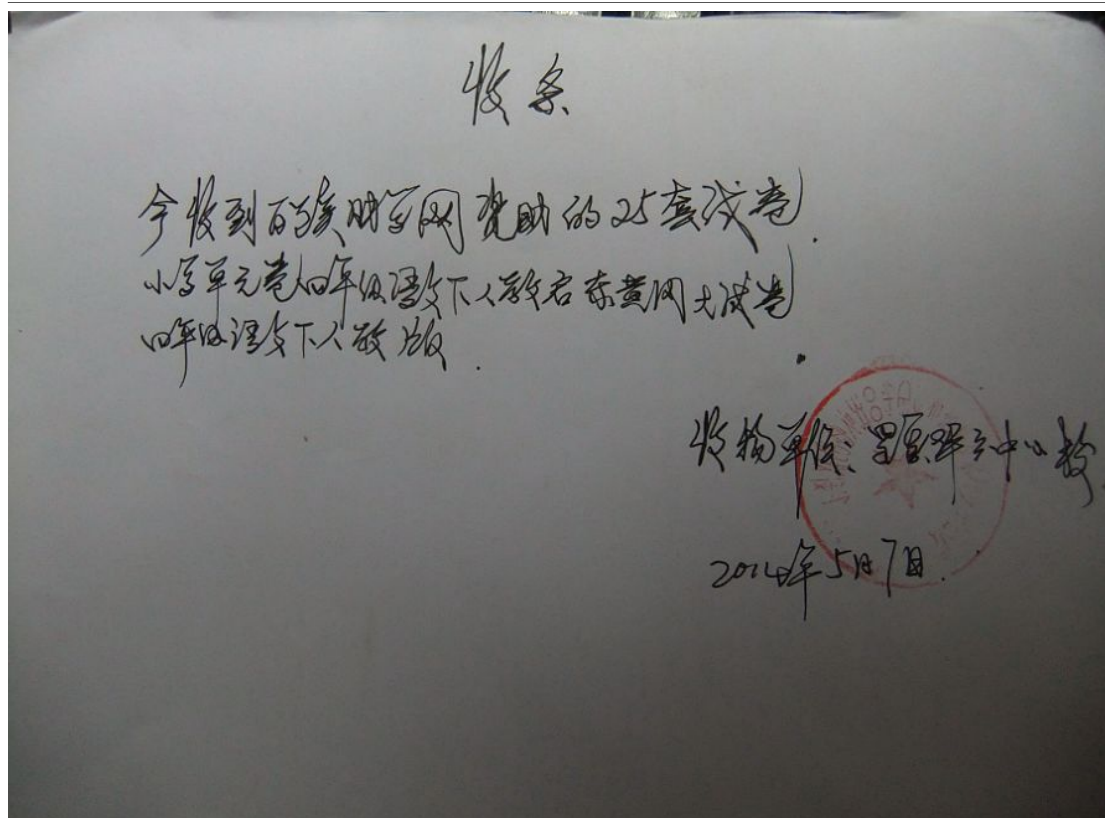 收条
今收到百族助学网凳助的25套试卷.
小学单元卷四年级语文下人教启东黄冈大试卷
四年级语文下人教版.
收物单位: 中心校
2014年5月7日.